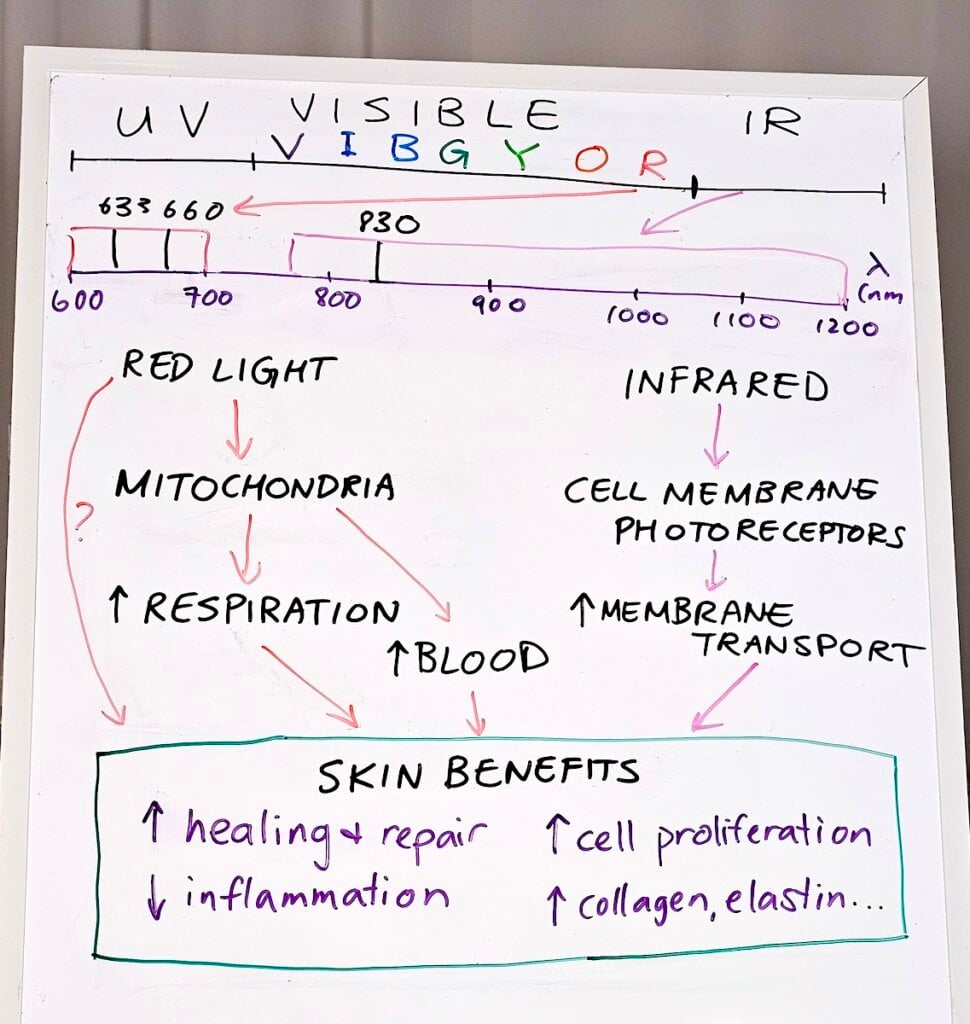 UV VISIBLE IR
VIBGYOR
633 660 830
λ
(nm
600 700 800 900 1000 1100 1200
RED LIGHT
INFRARED
?
MITOCHONDRIA
CELL MEMBRANE
PHOTORECEPTORS
↑ RESPIRATION
↑ BLOOD
↑ MEMBRANE
TRANSPORT
SKIN BENEFITS
↑ healing + repair
↑ cell proliferation
↓ inflammation
↑ collagen, elastin...